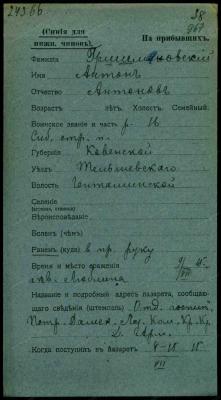 24366
38
963
(Синія для нижн. чиновъ).
На прибывшихъ.
Фамилія
Имя Антонъ
Отчество Антоновъ
Возрастъ лѣтъ. Холост. Семейный.
Воинское званіе и часть р. 16
Сиб. стр. п.
Губернія Ковенской
Уѣздъ Тельшевскаго
Волость
Селеніе
Вѣроисповѣданіе
Боленъ (чѣмъ)
Раненъ (куда) въ пр. руку
Время и мѣсто раненія 9/VII 15
Люблина
Названіе и подробный адресъ лазарета, сообщающаго свѣдѣнія (штемпель) Отд. госпит.
Петр. Дамск. Лаз. Ком. Кр. Кр.
Когда поступилъ въ лазаретъ 8-15 15
VII